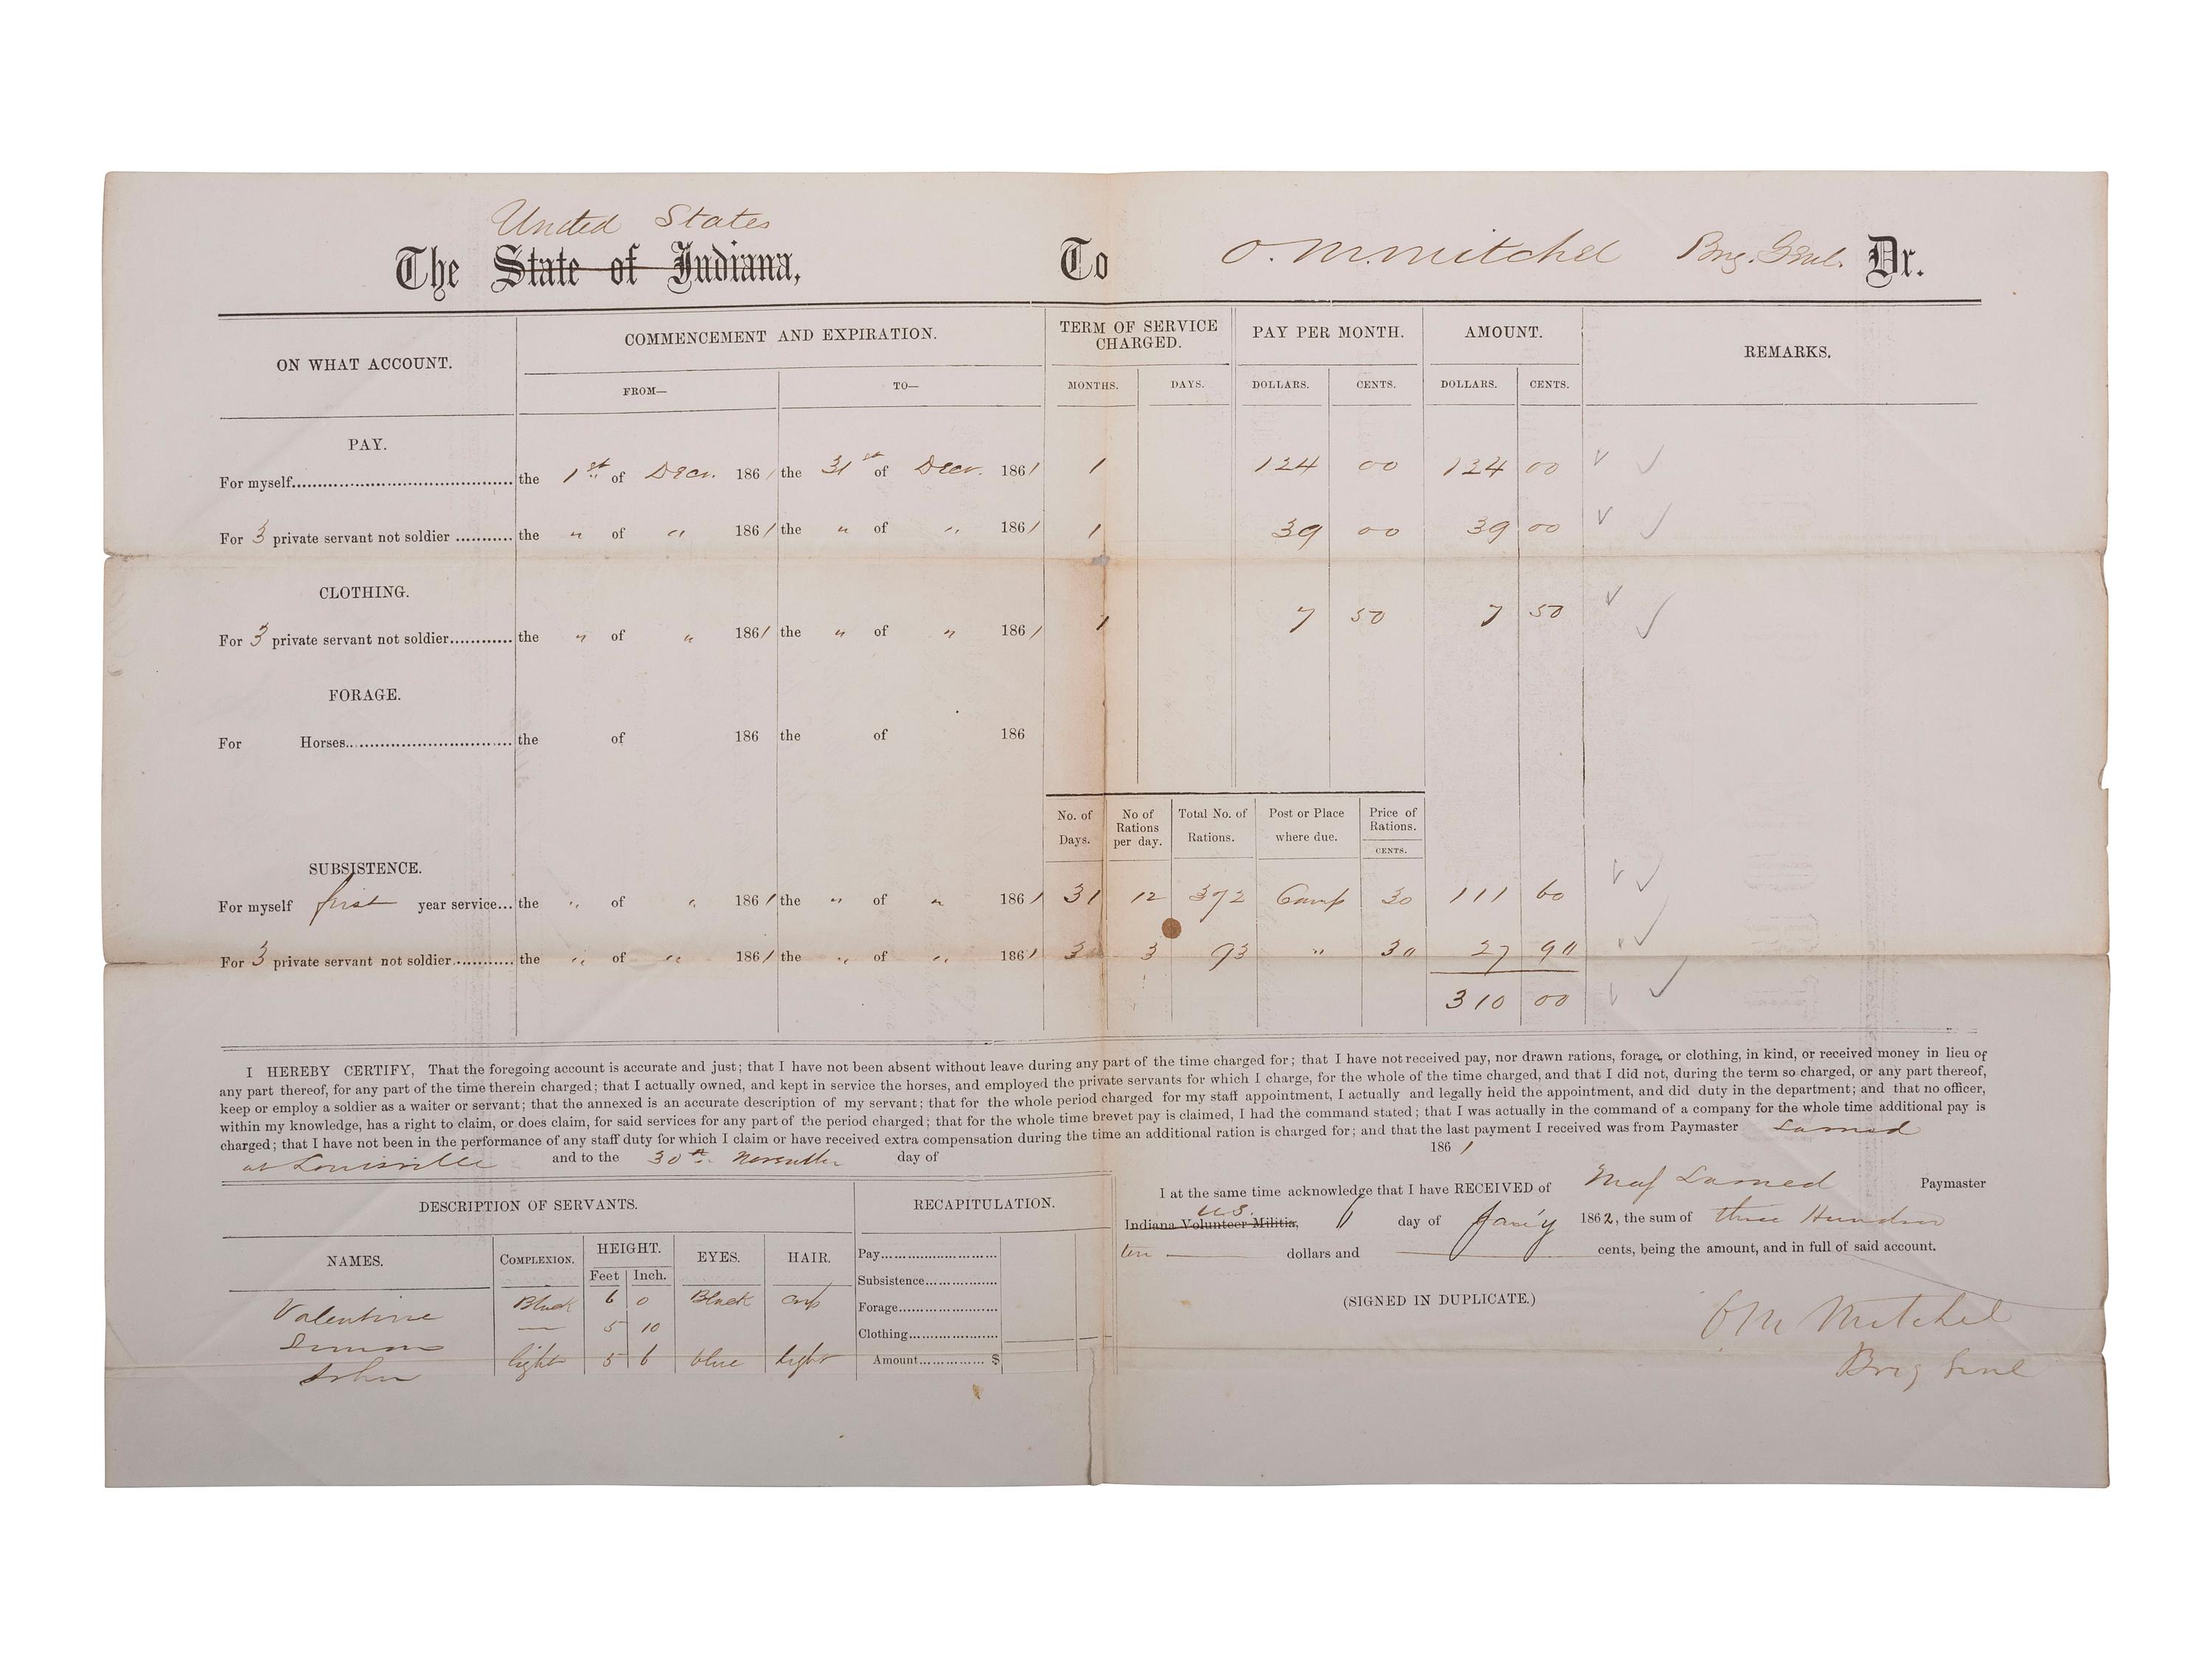 United States
The State of Indiana, To O. M. Mitchel Brig. Genl. Dr.
ON WHAT ACCOUNT. COMMENCEMENT AND EXPIRATION. TERM OF SERVICE CHARGED. PAY PER MONTH. AMOUNT. REMARKS.
FROM— TO— MONTHS. DAYS. DOLLARS. CENTS. DOLLARS. CENTS.
PAY.
For myself the 1st of Decr. 1861 the 31st of Decr. 1861 1 124 00 124 00
For 3 private servant not soldier the " of " 1861 the " of " 1861 1 39 00 39 00
CLOTHING.
For 3 private servant not soldier the " of " 1861 the " of " 1861 1 7 50 7 50
FORAGE.
For Horses the of 186 the of 186
No. of Days. No of Rations per day. Total No. of Rations. Post or Place where due. Price of Rations. CENTS.
SUBSISTENCE.
For myself first year service... the " of " 1861 the " of " 1861 31 12 372 Camp 30 111 60
For 3 private servant not soldier the " of " 1861 the " of " 1861 31 3 93 " 30 27 90
310 00
I HEREBY CERTIFY, That the foregoing account is accurate and just; that I have not been absent without leave during any part of the time charged for; that I have not received pay, nor drawn rations, forage, or clothing, in kind, or received money in lieu of
any part thereof, for any part of the time therein charged; that I actually owned, and kept in service the horses, and employed the private servants for which I charge, for the whole of the time charged, and that I did not, during the term so charged, or any part thereof,
keep or employ a soldier as a waiter or servant; that the annexed is an accurate description of my servant; that for the whole period charged for my staff appointment, I actually and legally held the appointment, and did duty in the department; and that no officer,
within my knowledge, has a right to claim, or does claim, for said services for any part of the period charged; that for the whole time brevet pay is claimed, I had the command stated; that I was actually in the command of a company for the whole time additional pay is
charged; that I have not been in the performance of any staff duty for which I claim or have received extra compensation during the time an additional ration is charged for; and that the last payment I received was from Paymaster Larned
at Louisville and to the 30th November day of 1861
DESCRIPTION OF SERVANTS. RECAPITULATION.
NAMES. COMPLEXION. HEIGHT. Feet Inch. EYES. HAIR.
Valentine Black 6 0 Black
Simon — 5 10
John light 5 6 blue light
Pay
Subsistence
Forage
Clothing
Amount $
I at the same time acknowledge that I have RECEIVED of Maj Larned Paymaster
U.S.
Indiana Volunteer Militia, day of Jan'y 1862, the sum of three Hundred
ten dollars and cents, being the amount, and in full of said account.
(SIGNED IN DUPLICATE.)
O M Mitchel
Brig Genl